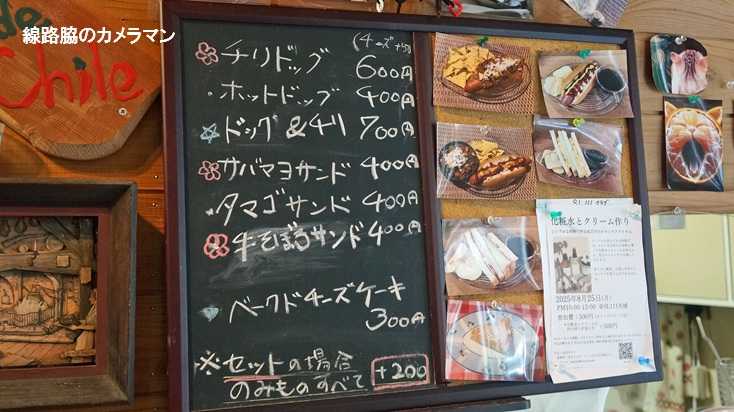 線路脇のカメラマン
de
Chile
チリドッグ 600円
ホットドッグ 400円
ドッグ&チリ 700円
サバマヨサンド 400円
タマゴサンド 400円
牛そぼろサンド 400円
ベークドチーズケーキ
300円
※セットの場合
のみものすべて +200
化粧水とクリーム作り
2025年8月25日(月)